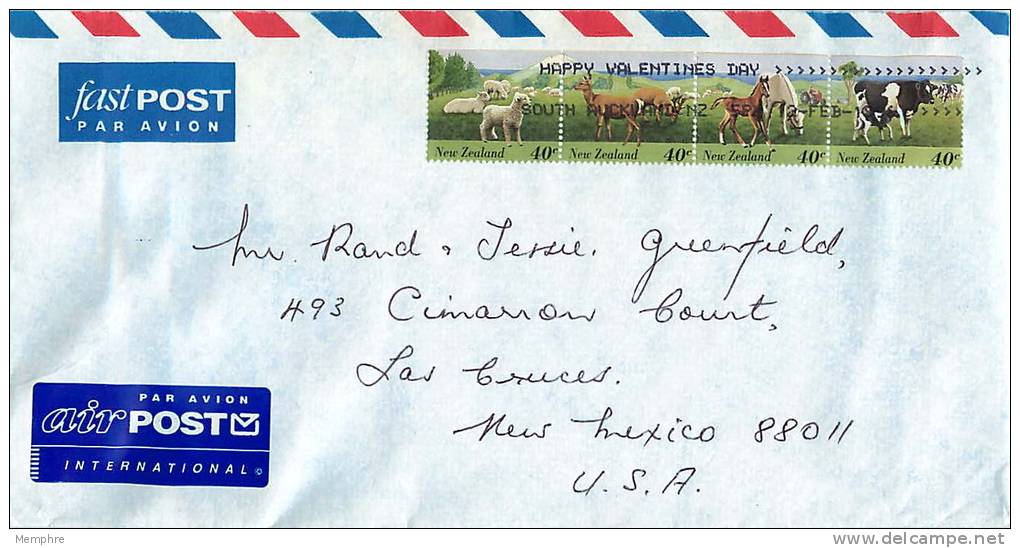 fast POST
PAR AVION
HAPPY VALENTINES DAY >>>>>>>>>>>>>>>>>>
SOUTH AUCKLAND NZ FEB
New Zealand 40c New Zealand 40c New Zealand 40c New Zealand 40c
Mr. Rand & Jessie. Greenfield,
493 Cimarron Court,
Las Cruces.
New Mexico 88011
U.S.A.
PAR AVION
air POST
INTERNATIONAL
Memphre
delcampe.net